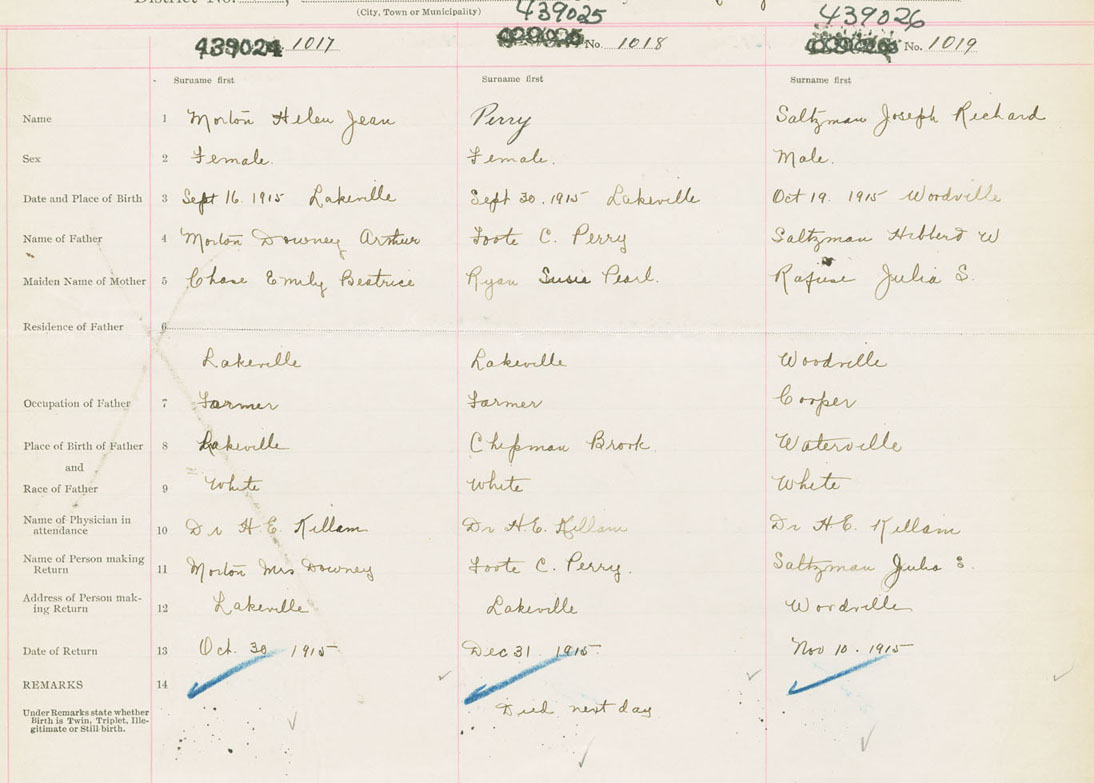 District No.
(City, Town or Municipality)
439025
439026
439024 1017
No. 1018
No. 1019
Surname first Surname first Surname first
Name 1 Morton Helen Jean Perry Saltzman Joseph Richard
Sex 2 Female. Female. Male.
Date and Place of Birth 3 Sept 16. 1915 Lakeville Sept 30. 1915 Lakeville Oct 19. 1915 Woodville
Name of Father 4 Morton Downey Arthur Foote C. Perry Saltzman Hibberd W
Maiden Name of Mother 5 Chase Emily Beatrice Ryan Susie Pearl. Rafuse Julia S.
Residence of Father 6
Lakeville Lakeville Woodville
Occupation of Father 7 Farmer Farmer Cooper
Place of Birth of Father 8 Lakeville Chipman Brook Waterville
and
Race of Father 9 White White White
Name of Physician in
attendance 10 Dr H.E. Killam Dr H.E. Killam Dr H.E. Killam
Name of Person making
Return 11 Morton Mrs Downey Foote C. Perry. Saltzman Julia S.
Address of Person mak-
ing Return 12 Lakeville Lakeville Woodville
Date of Return 13 Oct. 30 1915 Dec 31 1915 Nov 10. 1915
REMARKS 14
Under Remarks state whether
Birth is Twin, Triplet, Ille-
gitimate or Still-birth.
Died next day